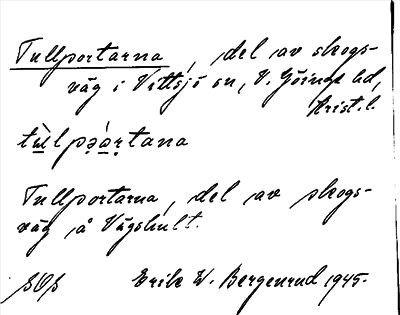 Tullportarna, del av skogs-
väg i Vittsjö sn, V. Göinge hd,
Krist. l.
tu̲lpə̣å̲ṛtana
Tullportarna, del av skogs-
väg å Vägshult.
SOS Erik W. Bergenrud 1945.